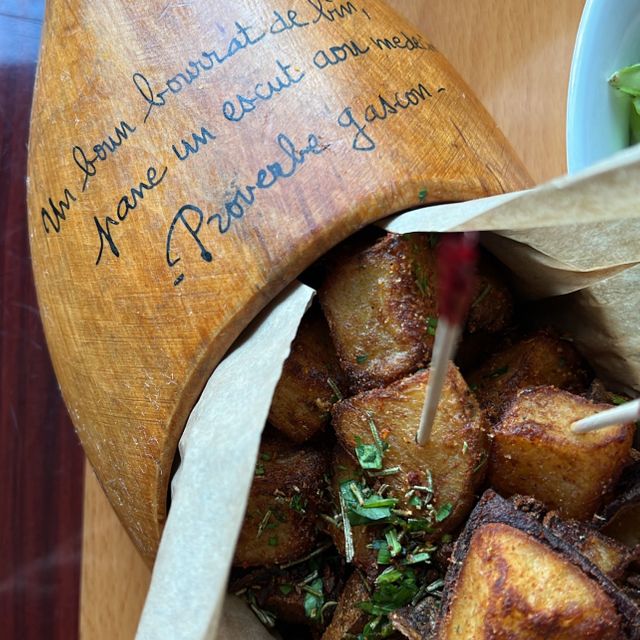 Un boun bourrat de bin,
pane un escut aou mede
- Proverbe gascon -